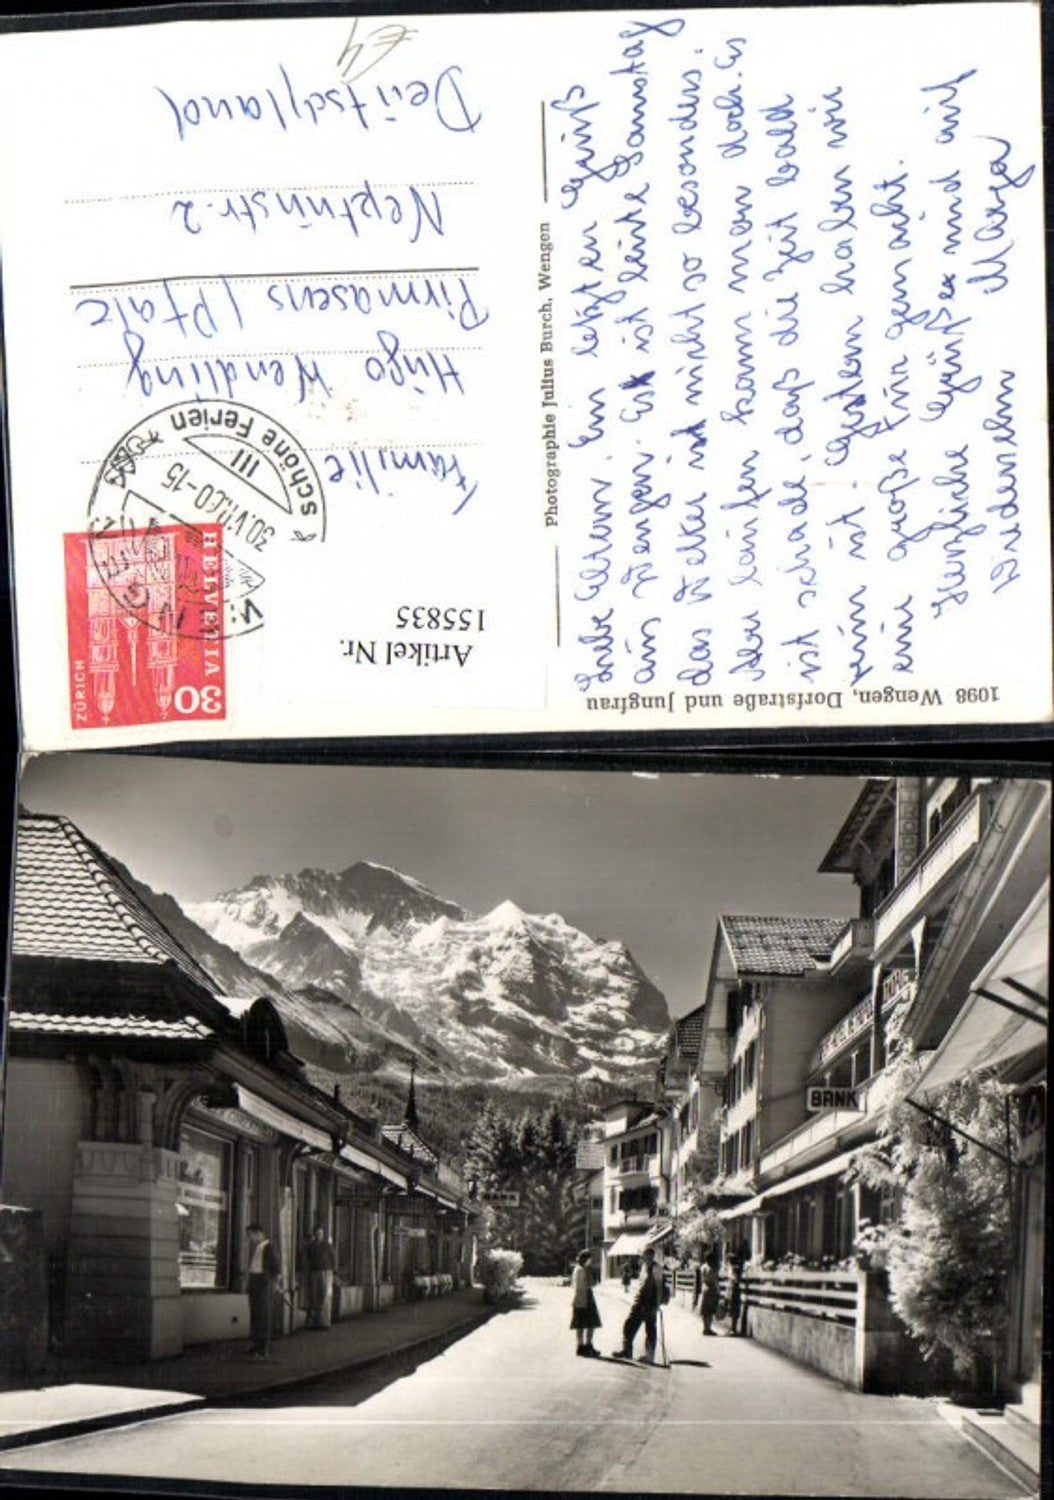 1098 Wengen, Dorfstraße und Jungfrau
Liebe Eltern. Ein letzten Gruß
aus Wengen. Es ist heute Samstag
das Wetter ist nicht so besonders.
Aber laufen kann man doch. Es
ist schade, daß die Zeit bald
rum ist. Gestern haben wir
eine große Tur gemacht.
Herzliche Grüße und auf
Wiedersehn
Photographie Julius Burch, Wengen
Artikel Nr.
155835
HELVETIA
30
ZÜRICH
WENGEN
30.VII.60-15
III
schöne Ferien
Familie
Hugo Wendling
Pirmasens / Pfalz
Neptunstr. 2
Deutschland
€4
BANK
BANK